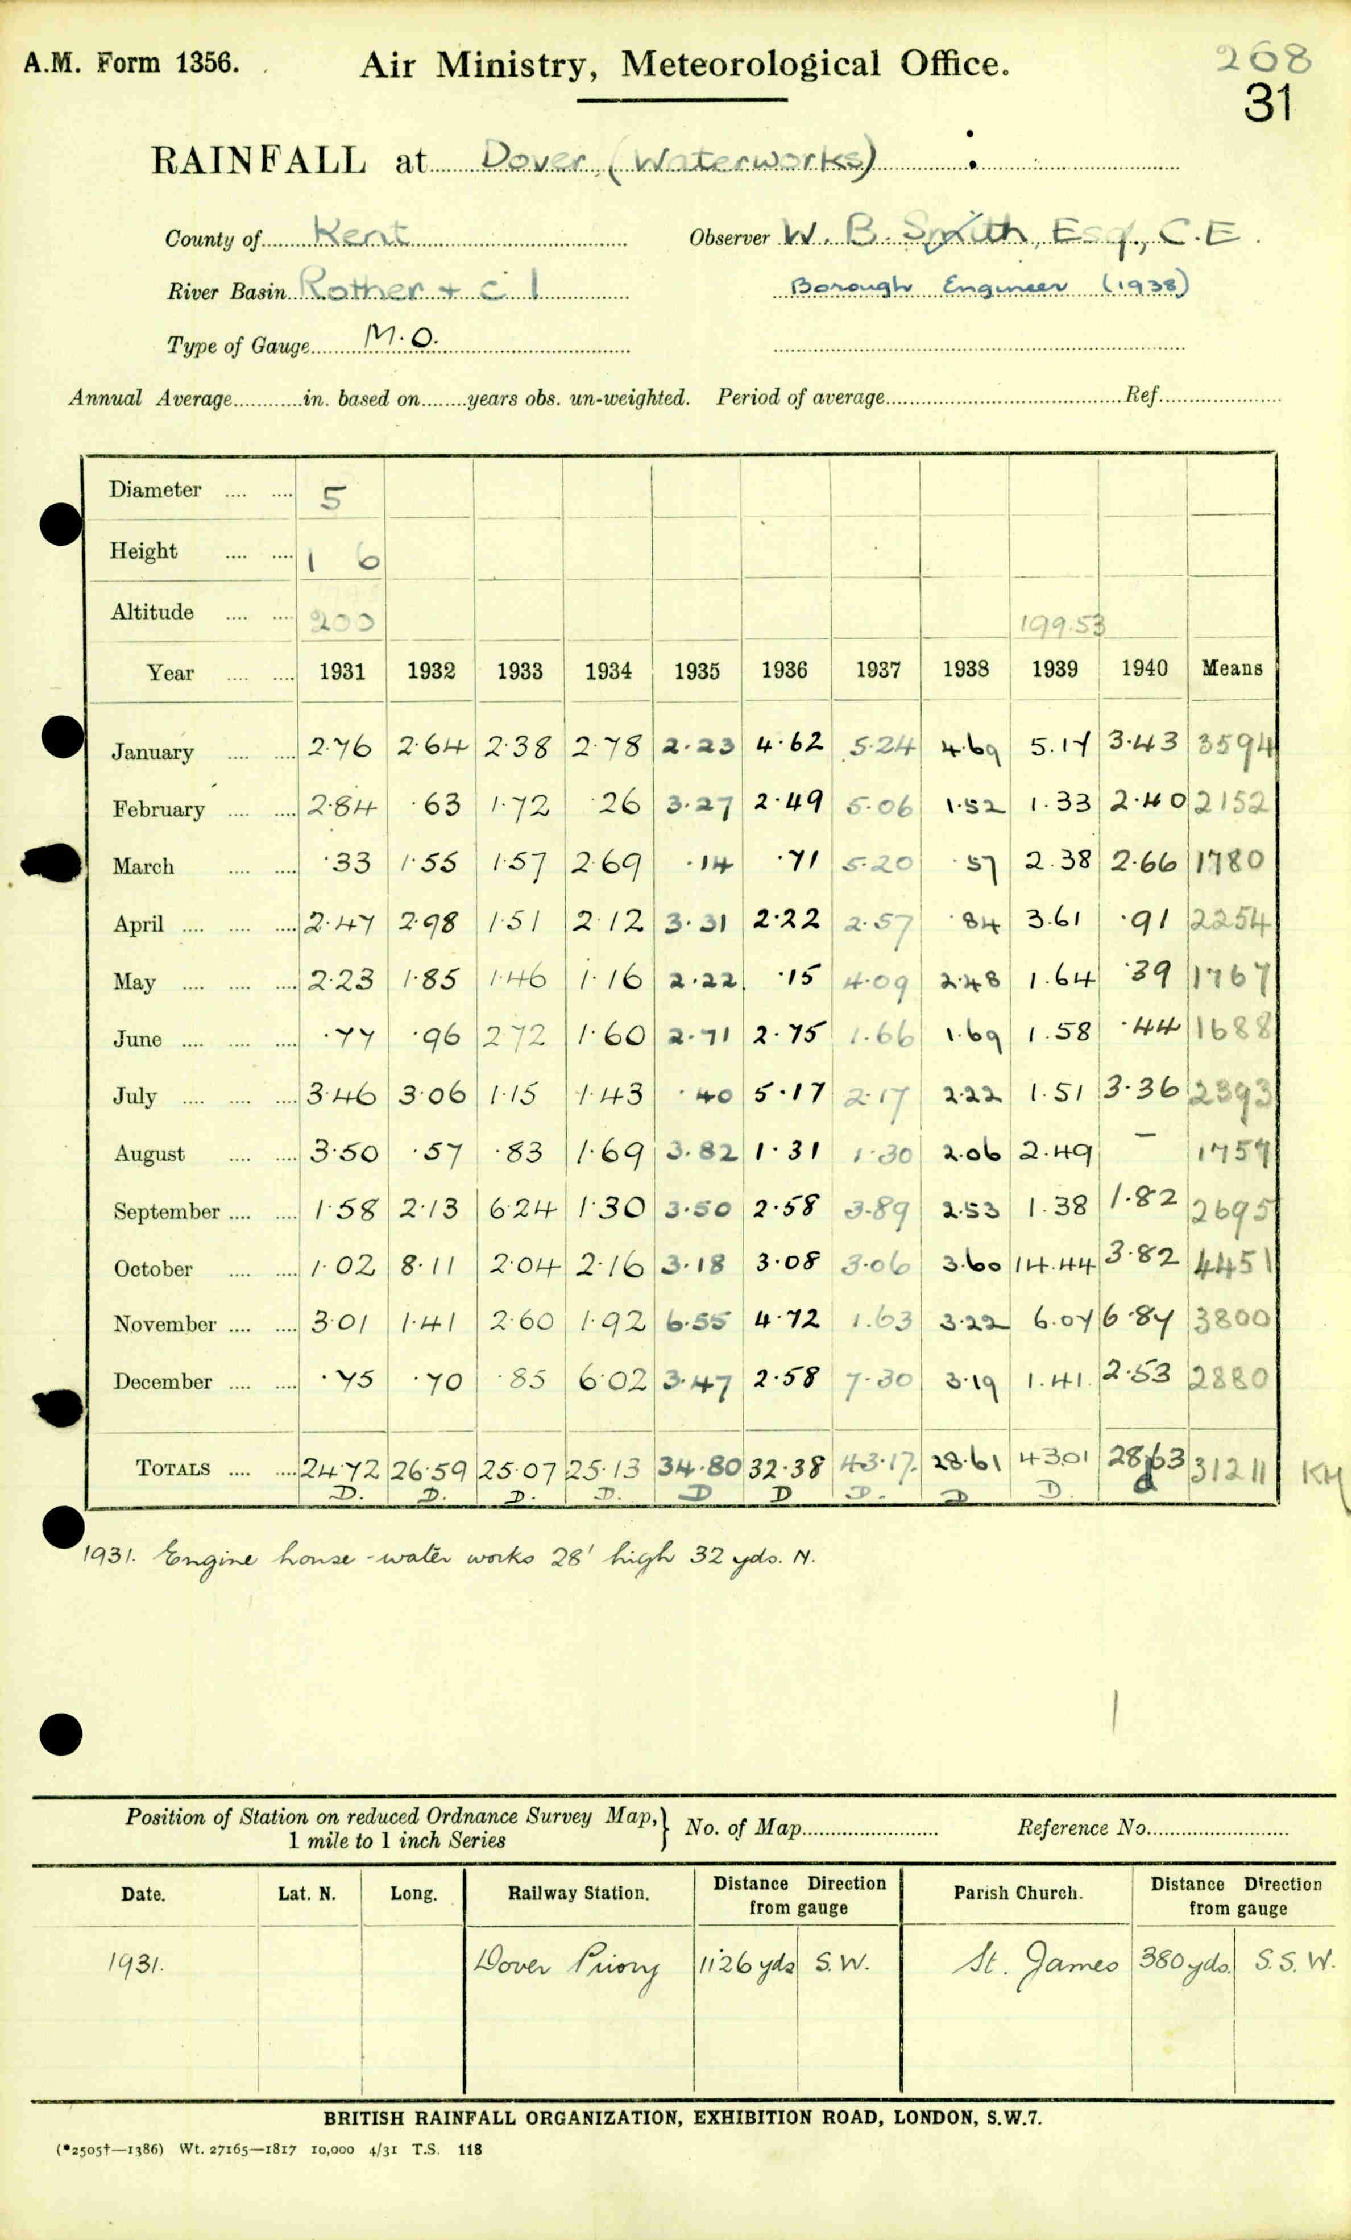 A.M. Form 1356. Air Ministry, Meteorological Office. 268
31
RAINFALL at Dover (Waterworks)
County of Kent Observer W. B. Smith, Esq., C.E.
River Basin Rother + c 1 Borough Engineer (1938)
Type of Gauge M.O.
Annual Average in. based on years obs. un-weighted. Period of average Ref.
Diameter 5
Height 1 6
Altitude 200 199.53
Year 1931 1932 1933 1934 1935 1936 1937 1938 1939 1940 Means
January 2.76 2.64 2.38 2.78 2.23 4.62 5.24 4.69 5.17 3.43 3594
February 2.84 .63 1.72 .26 3.27 2.49 5.06 1.52 1.33 2.40 2152
March .33 1.55 1.57 2.69 .14 .71 5.20 .57 2.38 2.66 1780
April 2.47 2.98 1.51 2.12 3.31 2.22 2.57 .84 3.61 .91 2254
May 2.23 1.85 1.46 1.16 2.22 .15 4.09 2.48 1.64 .39 1767
June .77 .96 2.72 1.60 2.71 2.75 1.66 1.69 1.58 .44 1688
July 3.46 3.06 1.15 1.43 .40 5.17 2.17 2.22 1.51 3.36 2393
August 3.50 .57 .83 1.69 3.82 1.31 1.30 2.06 2.49 — 1757
September 1.58 2.13 6.24 1.30 3.50 2.58 3.89 2.53 1.38 1.82 2695
October 1.02 8.11 2.04 2.16 3.18 3.08 3.06 3.60 14.44 3.82 4451
November 3.01 1.41 2.60 1.92 6.55 4.72 1.63 3.22 6.07 6.87 3800
December .75 .70 .85 6.02 3.47 2.58 7.30 3.19 1.41 2.53 2880
TOTALS 24.72 26.59 25.07 25.13 34.80 32.38 43.17 28.61 43.01 28.63 31211 KH
D. D. D. D. D D D. D D. d
1931. Engine house - water works 28' high 32 yds. N.
Position of Station on reduced Ordnance Survey Map, 1 mile to 1 inch Series } No. of Map Reference No.
Date. Lat. N. Long. Railway Station. Distance Direction from gauge Parish Church. Distance Direction from gauge
1931. Dover Priory 1126 yds S.W. St. James 380 yds. S.S.W.
BRITISH RAINFALL ORGANIZATION, EXHIBITION ROAD, LONDON, S.W.7.
(*2505†—1386) Wt. 27165—1817 10,000 4/31 T.S. 118